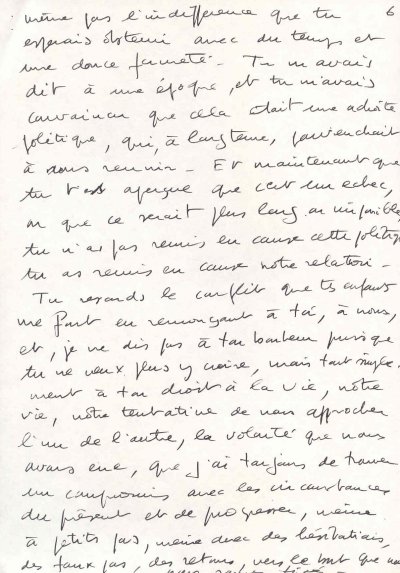 6
même pas l'indifférence que tu
espérais obtenir avec du temps et
une douce fermeté - Tu m'avais
dit à une époque, et tu m'avais
convaincu que cela était une adroite
politique, qui, à long terme, parviendrait
à nous réunir - Et maintenant que
tu t'es aperçue que c'est un échec,
ou que ce serait plus long ou impossible,
tu n'as pas remis en cause cette politique
tu as remis en cause notre relation -
Tu résouds le conflit que tes enfants
me font en renonçant à toi, à nous,
et, je ne dis pas à ton bonheur puisque
tu ne veux plus y croire, mais tout simple-
ment à ton droit à la vie, notre
vie, notre tentative de nous approcher
l'un de l'autre, la volonté que nous
avons eue, que j'ai toujours de trouver
un compromis avec les circonstances
du présent et de progresser, même
à petits pas, même avec des hésitations,
des faux pas, des retours, vers le but que